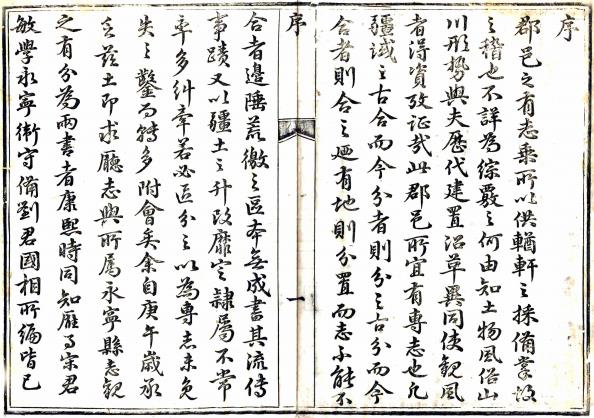 序
郡邑之有志乘所以供輶軒之採備掌故
之稽也不詳為綜覈之何由知土物風俗山
川形勢與夫歷代建置沿革異同使觀風
者得資攷証哉此郡邑所宜有專志也凡
疆域之古合而今分者則分之古分而今
合者則合之廼有地則分置而志不能不
序
一
合者邊陲荒徼之區本無成書其流傳
事蹟又以疆土之升改靡定隸屬不常
率多糾牽若必區分之以為專志未免
失之鑿而轉多附會矣余自庚午歲承
乏茲土即求廳志與所屬永寧縣志觀
之有分為兩書者康熙時同知雁門宋君
敏學永寧衛守備劉君國相所編皆已